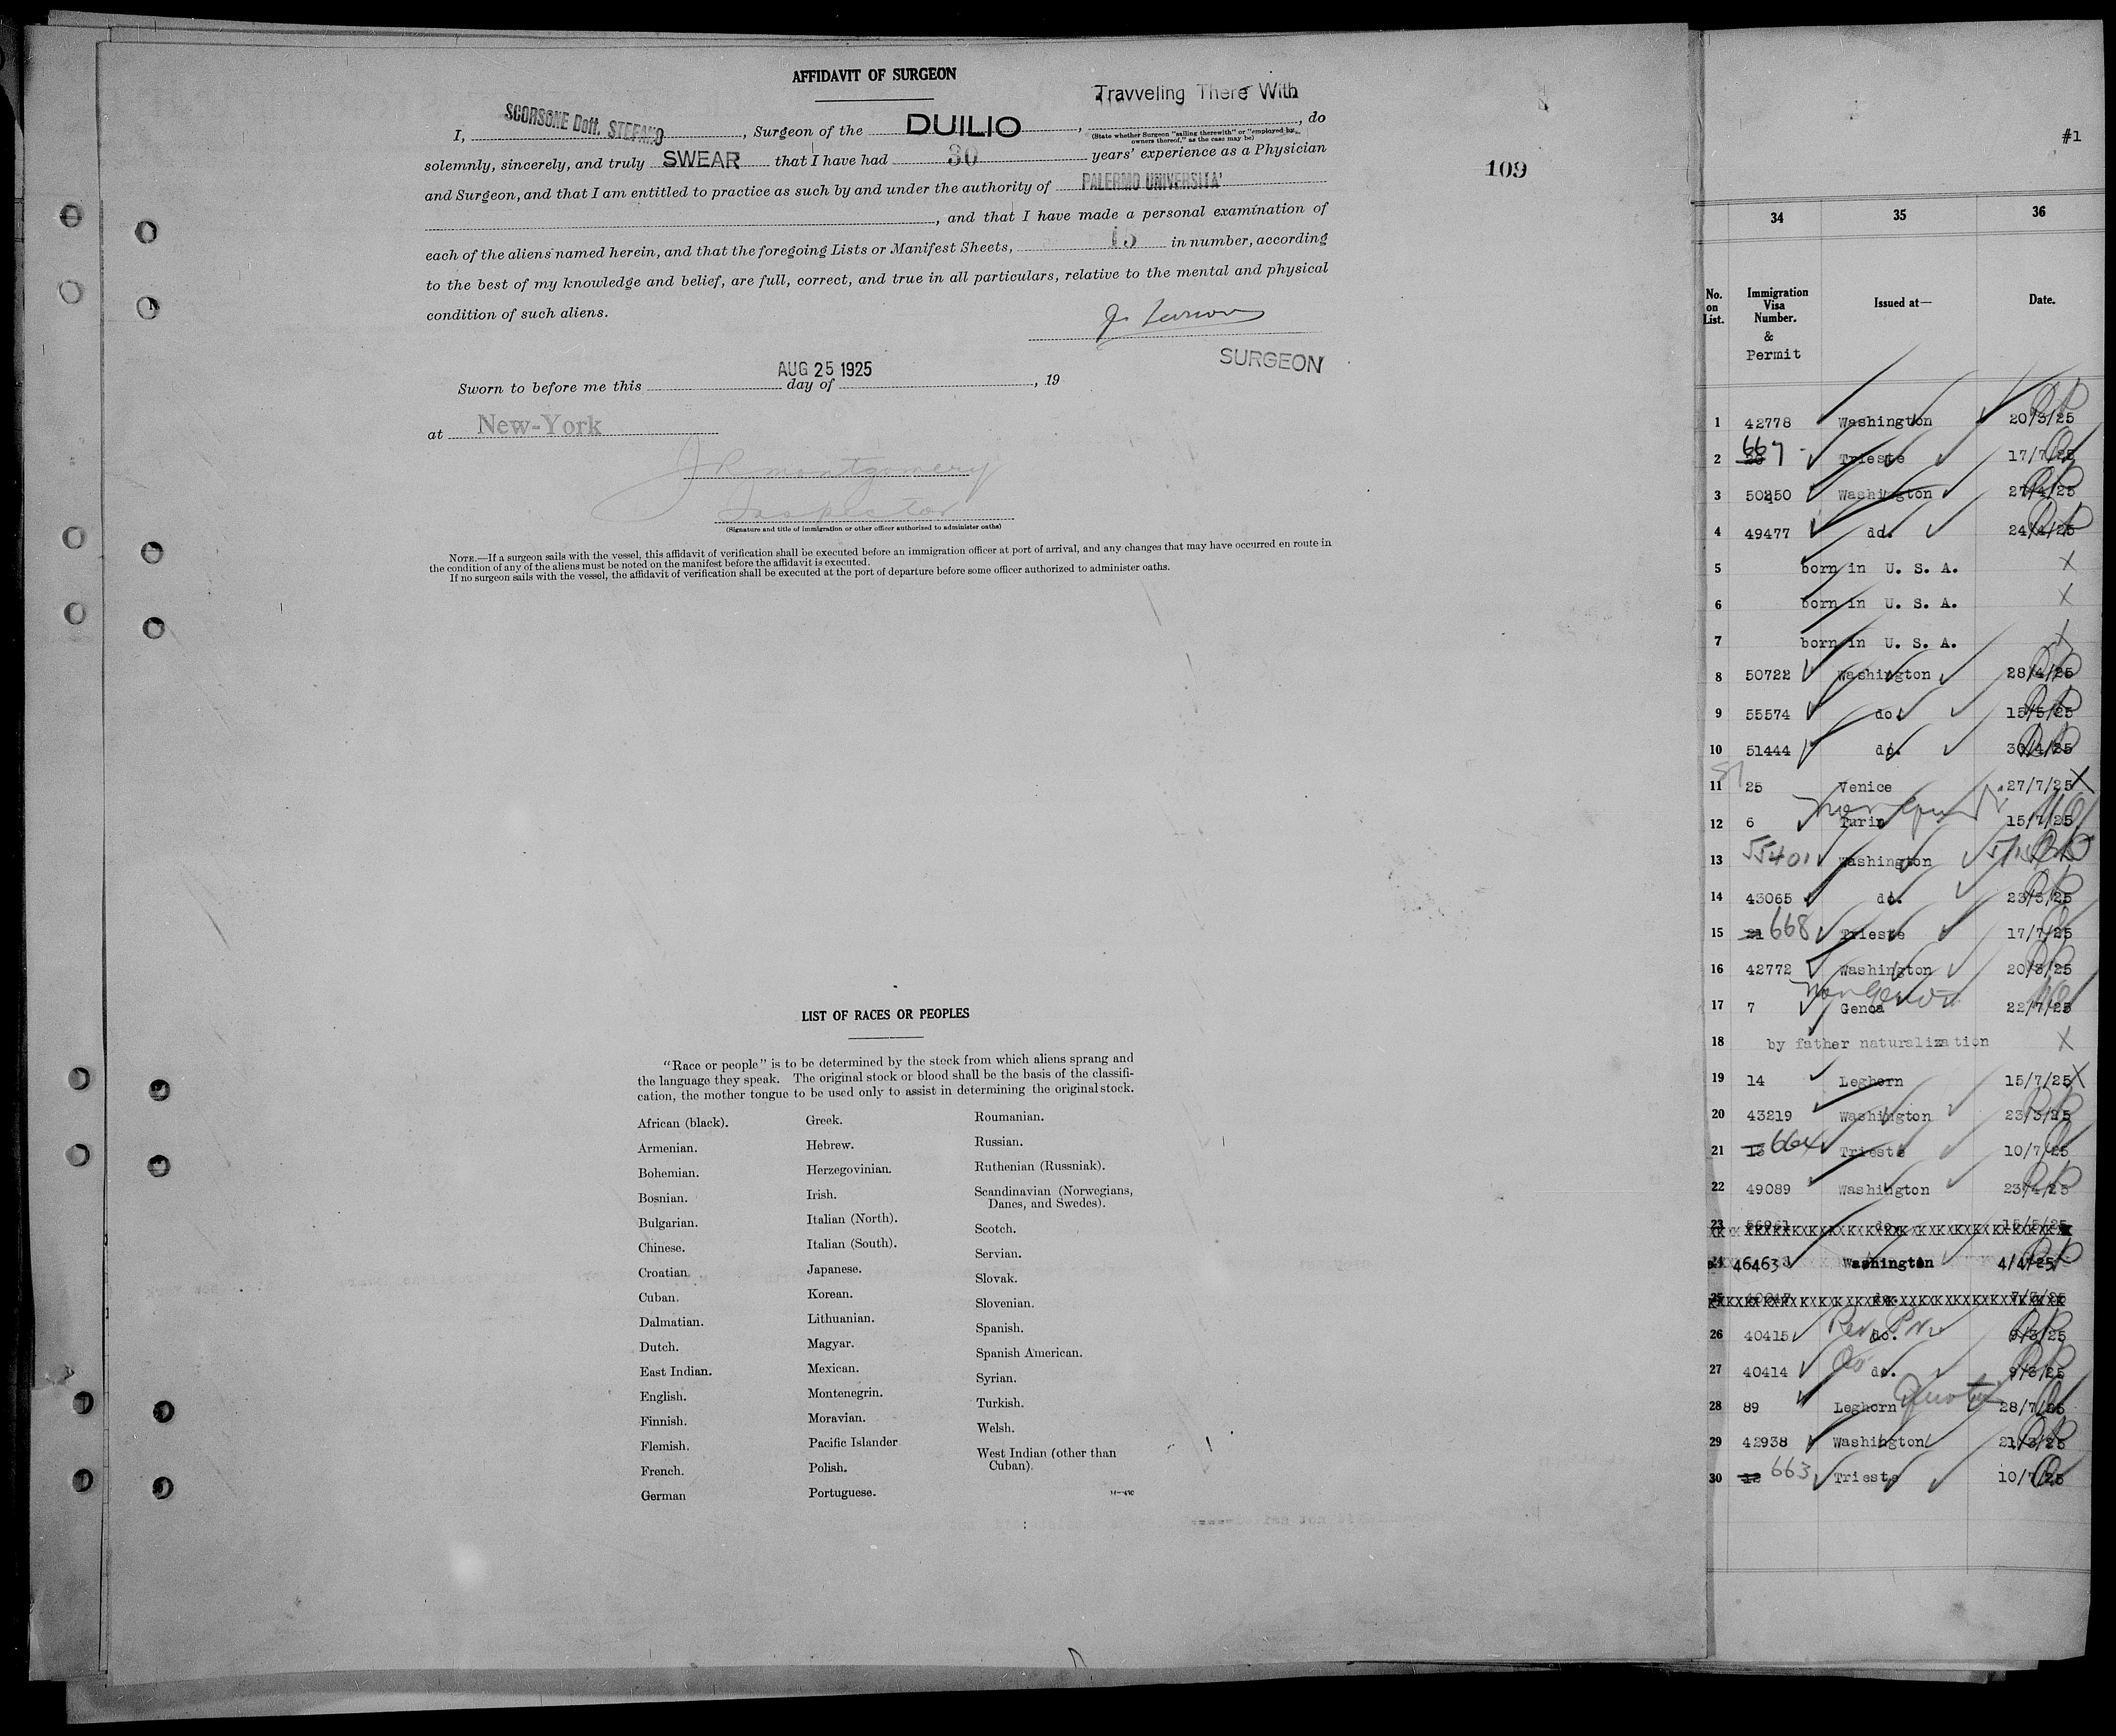 AFFIDAVIT OF SURGEON
Travveling There With
I, SCORSONE Dott. STEFANO, Surgeon of the DUILIO, , do
(State whether Surgeon "sailing therewith" or "employed by owners thereof," as the case may be)
solemnly, sincerely, and truly SWEAR that I have had 30 years' experience as a Physician
and Surgeon, and that I am entitled to practice as such by and under the authority of PALERMO UNIVERSITA'
, and that I have made a personal examination of
each of the aliens named herein, and that the foregoing Lists or Manifest Sheets, 15 in number, according
to the best of my knowledge and belief, are full, correct, and true in all particulars, relative to the mental and physical
condition of such aliens.
SURGEON
Sworn to before me this AUG 25 1925 day of , 19
at New-York
J R Montgomery
Inspector
(Signature and title of immigration or other officer authorized to administer oaths)
NOTE.—If a surgeon sails with the vessel, this affidavit of verification shall be executed before an immigration officer at port of arrival, and any changes that may have occurred en route in
the condition of any of the aliens must be noted on the manifest before the affidavit is executed.
If no surgeon sails with the vessel, the affidavit of verification shall be executed at the port of departure before some officer authorized to administer oaths.
109
LIST OF RACES OR PEOPLES
"Race or people" is to be determined by the stock from which aliens sprang and
the language they speak. The original stock or blood shall be the basis of the classifi-
cation, the mother tongue to be used only to assist in determining the original stock.
African (black).
Armenian.
Bohemian.
Bosnian.
Bulgarian.
Chinese.
Croatian
Cuban.
Dalmatian.
Dutch.
East Indian.
English.
Finnish.
Flemish.
French.
German
Greek.
Hebrew.
Herzegovinian.
Irish.
Italian (North).
Italian (South).
Japanese.
Korean.
Lithuanian.
Magyar.
Mexican.
Montenegrin.
Moravian.
Pacific Islander
Polish.
Portuguese.
Roumanian.
Russian.
Ruthenian (Russniak).
Scandinavian (Norwegians,
Danes, and Swedes).
Scotch.
Servian.
Slovak.
Slovenian.
Spanish.
Spanish American.
Syrian.
Turkish.
Welsh.
West Indian (other than
Cuban).
#1
34 35 36
No. on List. Immigration Visa Number. & Permit Issued at— Date.
1 42778 Washington 20/3/25
2 667 Trieste 17/7/25
3 50450 Washington 27/4/25
4 49477 do. 24/4/25
5 born in U. S. A. X
6 born in U. S. A. X
7 born in U. S. A. X
8 50722 Washington 28/4/25
9 55574 do. 15/5/25
10 51444 do. 30/4/25
11 25 Venice 27/7/25 X
12 6 Turin 15/7/25
13 55401 Washington
14 43065 do. 23/3/25
15 21 668 Trieste 17/7/25
16 42772 Washington 20/3/25
17 7 Genoa 22/7/25
18 by father naturalization X
19 14 Leghorn 15/7/25 X
20 43219 Washington 23/3/25
21 13 664 Trieste 10/7/25
22 49089 Washington 23/4/25
23 56961 do. 15/5/25
24 46463 Washington 4/4/25
25 do.
26 40415 do. 9/3/25
27 40414 do. do. 9/3/25
28 89 Leghorn Quota 28/7/25
29 42938 Washington 21/3/25
30 12 663 Trieste 10/7/25